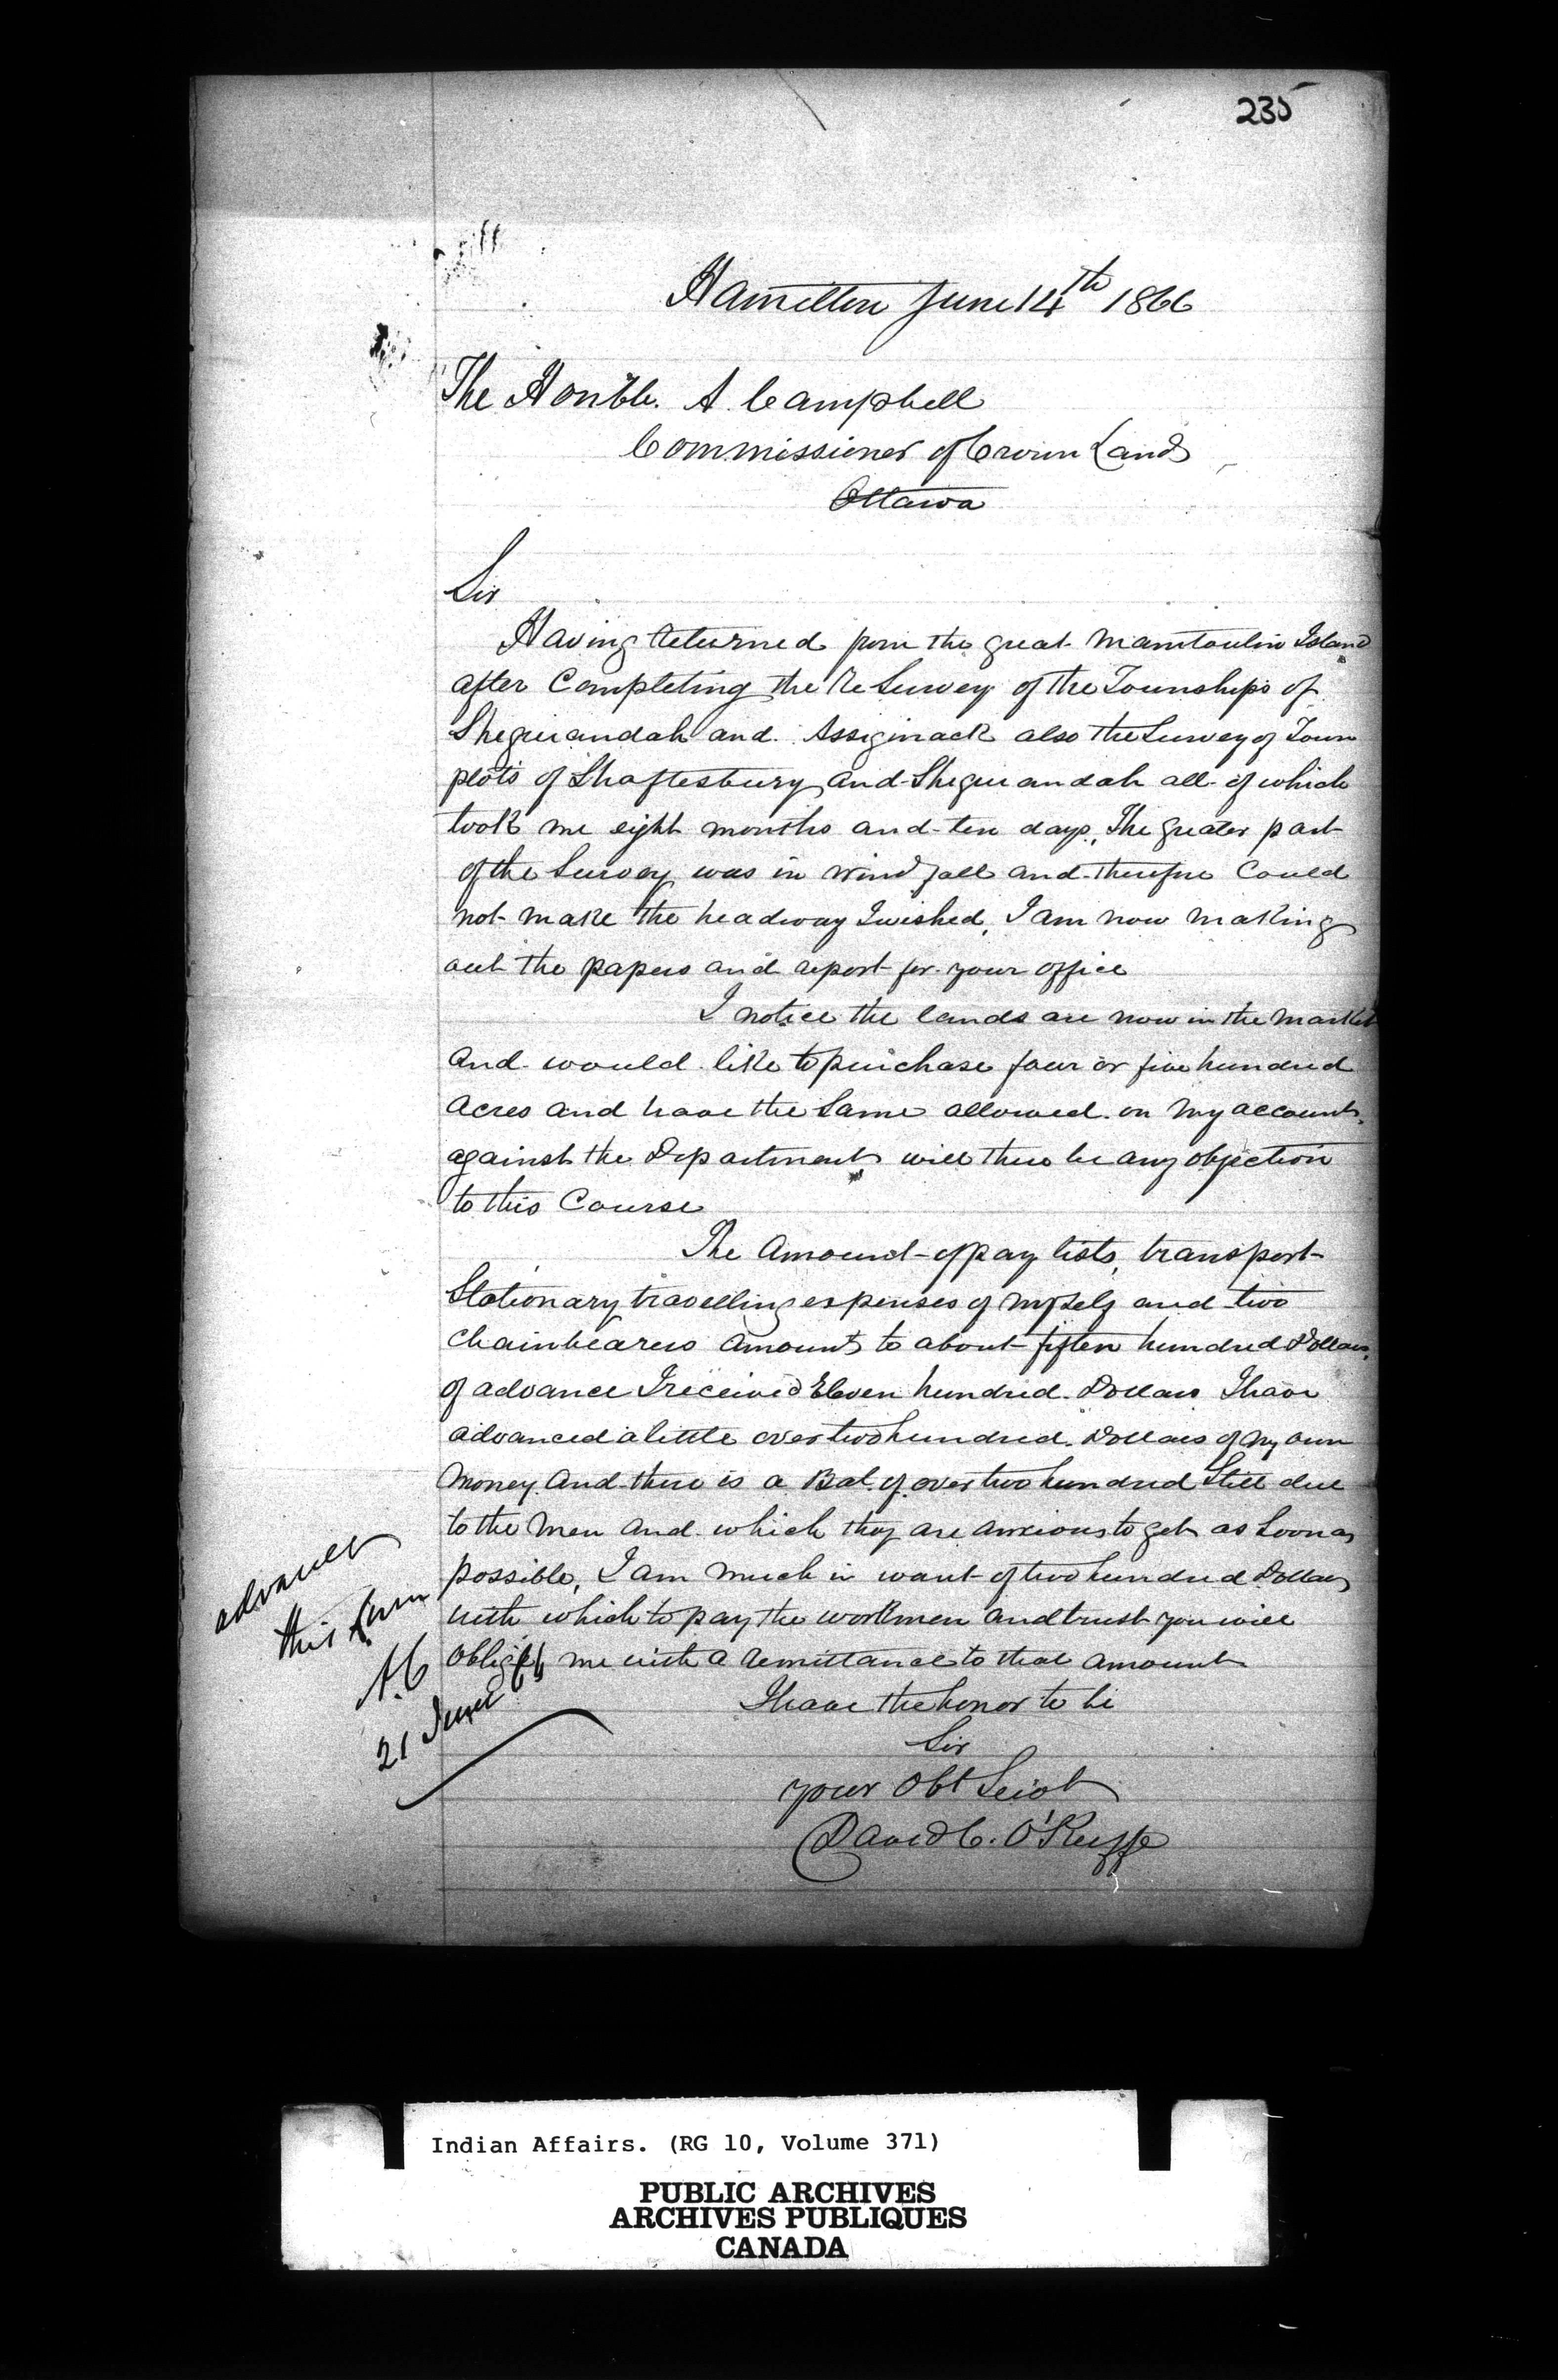 235
Hamilton June 14th 1866
The Honble. A. Campbell
Commissioner of Crown Lands
Ottawa
Sir
Having Returned from the great Manitoulin Island
after Completing the ReSurvey of the Townships of
Sheguiandah and Assiginack also the Survey of Town
plots of Shaftesbury and Sheguiandah all of which
took me eight months and ten days, The greater part
of the Survey was in Windfall and therefore Could
not make the headway I wished, I am now making
out the papers and report for your office
I notice the lands are now in the Market
and would like to purchase four or five hundred
Acres and have the Same allowed on My account
against the Department will there be any objection
to this Course
The Amount of pay lists, transport
Stationary travelling expenses of Myself and two
Chainbearers Amounts to about fiften hundred Dollars,
of advance I received Eleven hundred Dollars I have
advanced a little over two hundred Dollars of My own
Money And there is a Bal. of over two hundred Still due
to the Men and which they are anxious to get as Soon as
possible, I am Much in want of two hundred Dollars
with which to pay the workmen and trust you will
oblige me with a Remittance to that Amount
I have the honor to be
Sir
your Obt Servt
David C. O'Keeffe
advance
this sum
A.C
21 June 66
Indian Affairs. (RG 10, Volume 371)
PUBLIC ARCHIVES
ARCHIVES PUBLIQUES
CANADA